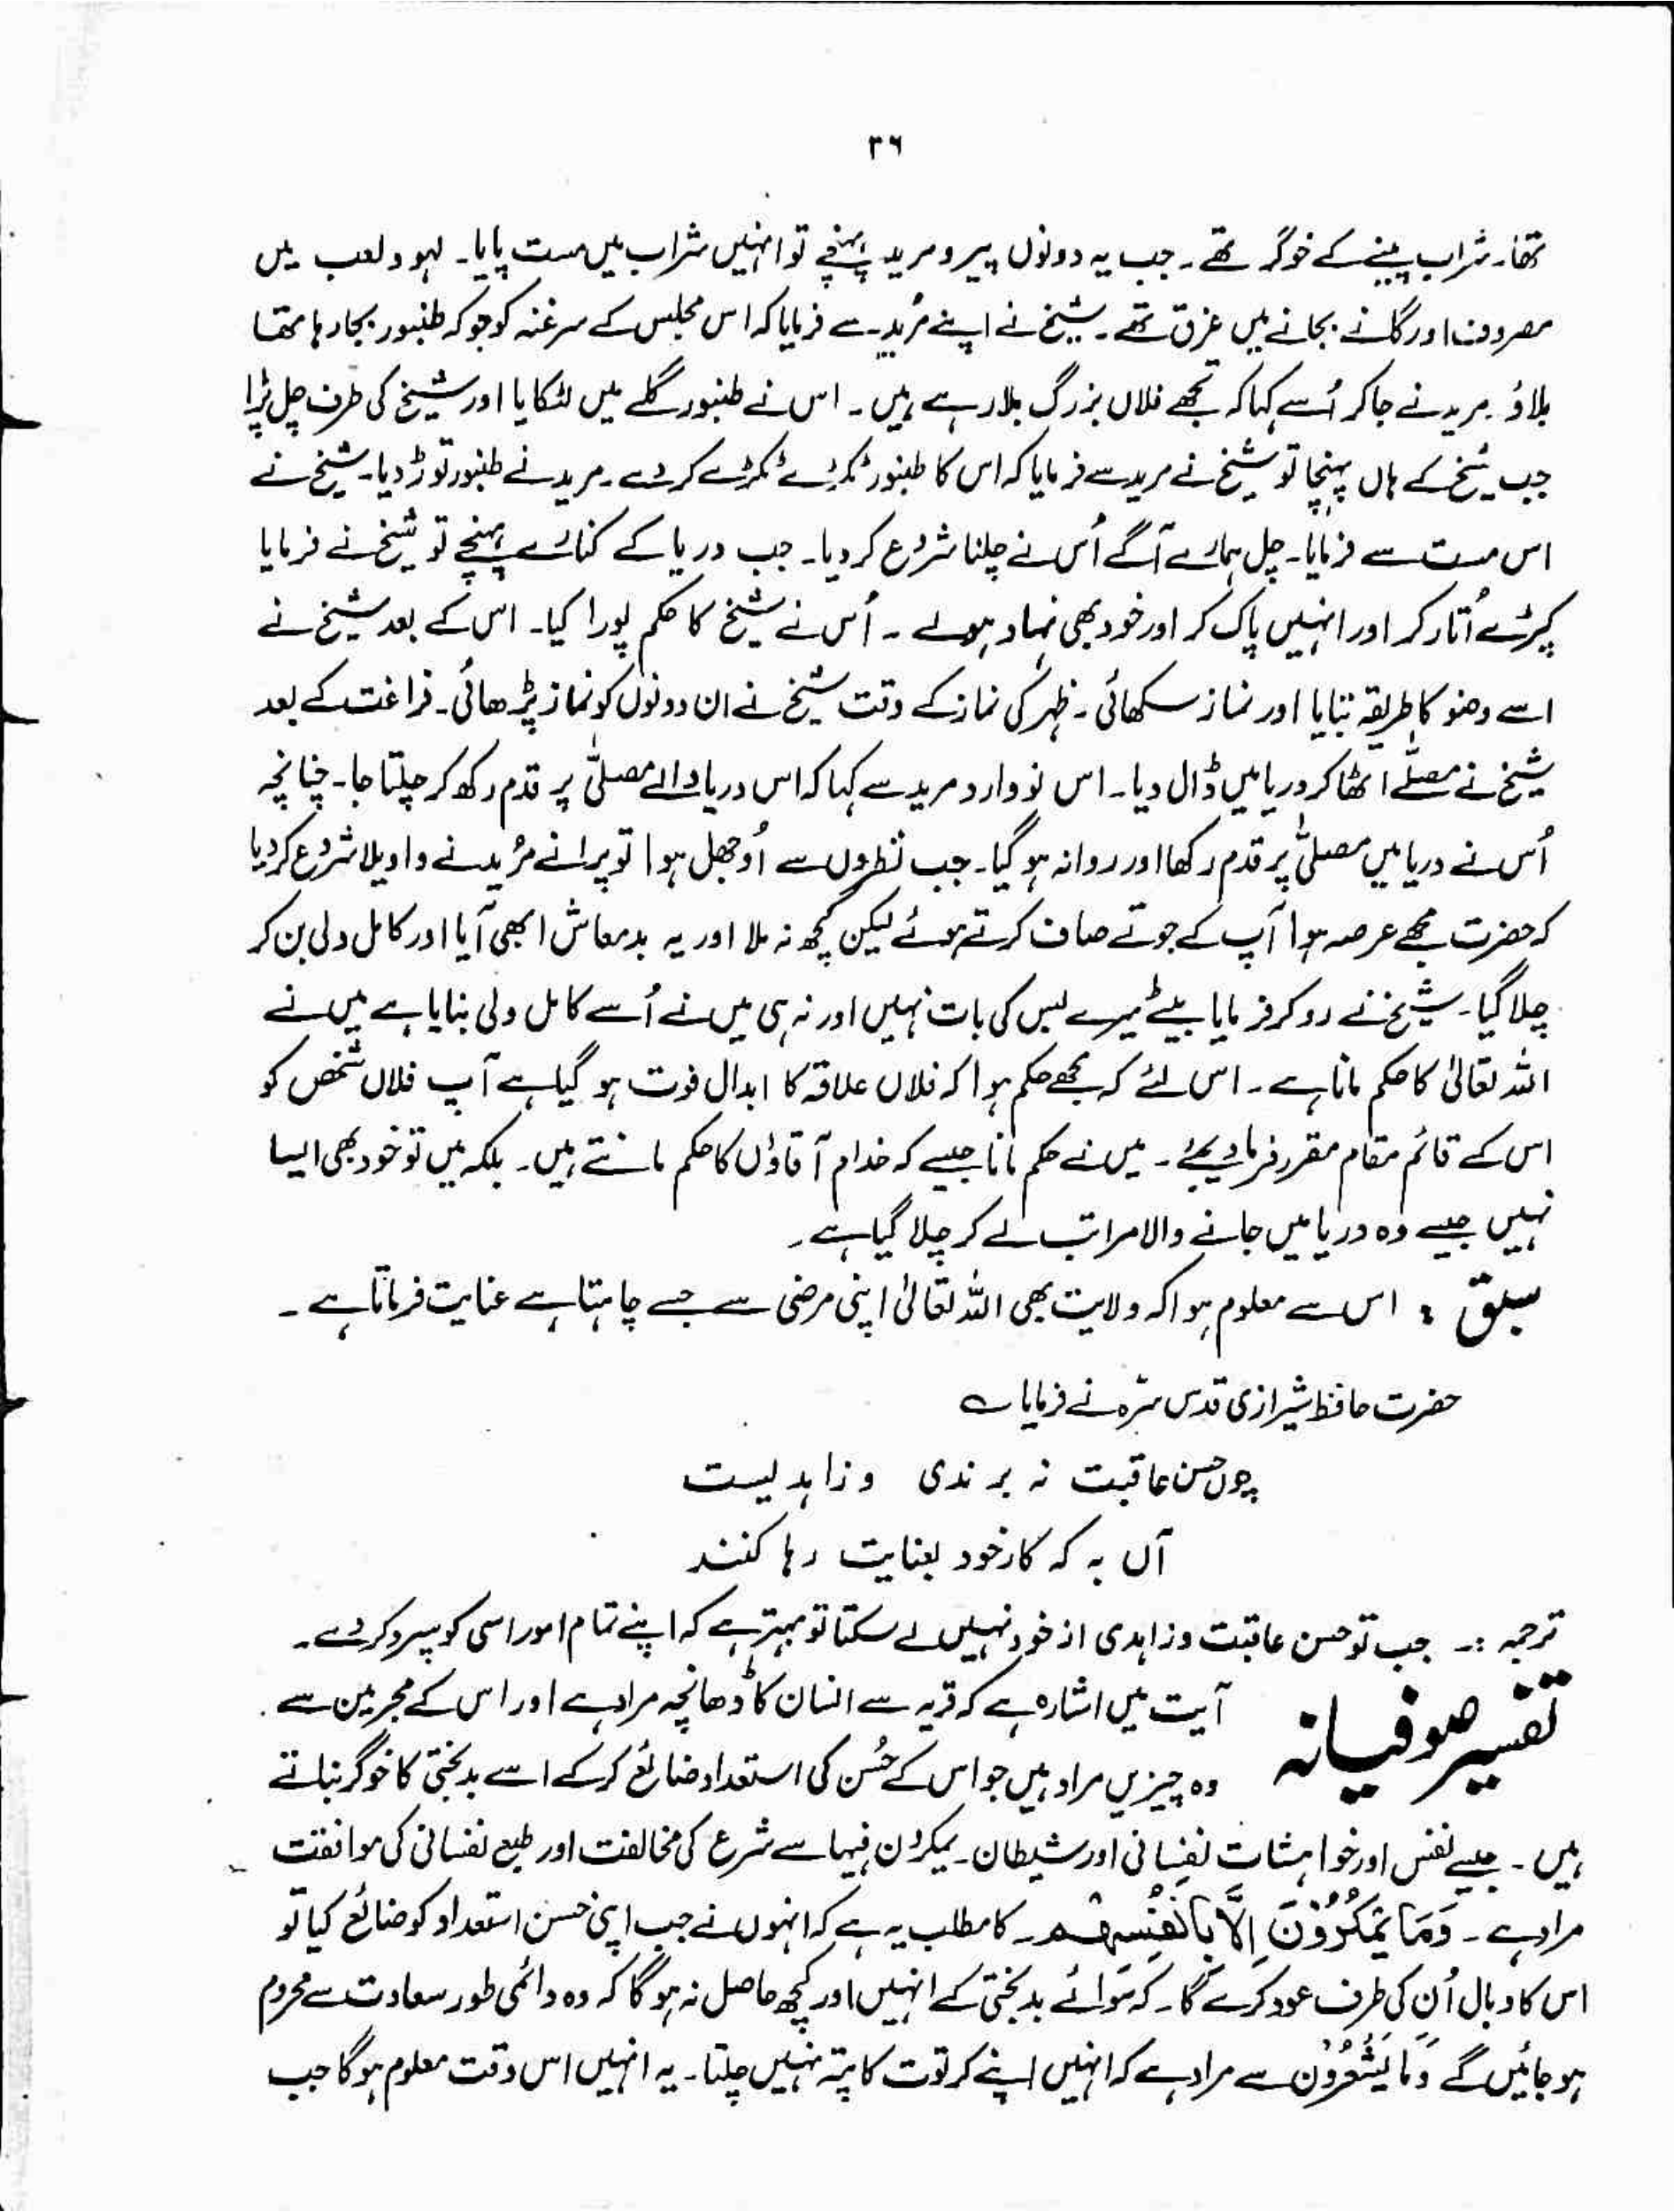 ۳۶
تھا۔ شراب پینے کے خوگر تھے۔ جب یہ دونوں پیر و مرید پہنچے تو انہیں شراب میں مست پایا۔ لہو و لعب میں
مصروف اور گانے بجانے میں غرق تھے۔ شیخ نے اپنے مُرید سے فرمایا کہ اس مجلس کے سرغنہ کو جو کہ طنبور بجا رہا تھا
بلاؤ۔ مرید نے جا کر اُسے کہا کہ تجھے فلاں بزرگ بلا رہے ہیں۔ اس نے طنبور گلے میں لٹکایا اور شیخ کی طرف چل پڑا
جب شیخ کے ہاں پہنچا تو شیخ نے مرید سے فرمایا کہ اس کا طنبور ٹکڑے ٹکڑے کر دے۔ مرید نے طنبور توڑ دیا۔ شیخ نے
اس مست سے فرمایا۔ چل ہمارے آگے اُس نے چلنا شروع کر دیا۔ جب دریا کے کنارے پہنچے تو شیخ نے فرمایا
کپڑے اُتار کر اور انہیں پاک کر اور خود بھی نہا دھولے ۔ اُس نے شیخ کا حکم پورا کیا۔ اس کے بعد شیخ نے
اسے وضو کا طریقہ بتایا اور نماز سکھائی۔ ظہر کی نماز کے وقت شیخ نے ان دونوں کو نماز پڑھائی۔ فراغت کے بعد
شیخ نے مصلّے اٹھا کر دریا میں ڈال دیا۔ اس نو وارد مرید سے کہا کہ اس دریا والے مصلّٰی پر قدم رکھ کر چلتا جا۔ چنانچہ
اُس نے دریا میں مصلّٰی پر قدم رکھا اور روانہ ہو گیا۔ جب نظروں سے اُوجھل ہوا تو پرانے مُرید نے واویلا شروع کر دیا
کہ حضرت مجھے عرصہ ہوا آپ کے جوتے صاف کرتے ہوئے لیکن کچھ نہ ملا اور یہ بدمعاش ابھی آیا اور کامل ولی بن کر
چلا گیا۔ شیخ نے رو کر فرمایا بیٹے میرے بس کی بات نہیں اور نہ ہی میں نے اُسے کامل ولی بنایا ہے میں نے
اللہ تعالیٰ کا حکم مانا ہے۔ اس لئے کہ مجھے حکم ہوا کہ فلاں علاقہ کا ابدال فوت ہو گیا ہے آپ فلاں شخص کو
اس کے قائم مقام مقرر فرما دیجئے۔ میں نے حکم مانا جیسے کہ خدام آقاؤں کا حکم مانتے ہیں۔ بلکہ میں تو خود بھی ایسا
نہیں جیسے وہ دریا میں جانے والا مراتب لے کر چلا گیا ہے۔
سبق : اس سے معلوم ہوا کہ ولایت بھی اللہ تعالیٰ اپنی مرضی سے جسے چاہتا ہے عنایت فرماتا ہے ۔
حضرت حافظ شیرازی قدس سرّہ نے فرمایا ؎
چوں حسن عاقبت نہ برندی و زاہدیست
آں بہ کہ کار خود بعنایت رہا کنند
ترجمہ :۔ جب تو حسن عاقبت و زاہدی از خود نہیں لے سکتا تو بہتر ہے کہ اپنے تمام امور اسی کو سپرد کر دے۔
تفسیر صوفیانہ آیت میں اشارہ ہے کہ قریہ سے انسان کا ڈھانچہ مراد ہے اور اس کے مجرمین سے
وہ چیزیں مراد ہیں جو اس کے حُسن کی استعداد ضائع کر کے اسے بدبختی کا خوگر بناتے
ہیں ۔ جیسے نفس اور خواہشات نفسانی اور شیطان۔ یمکرون فیہا سے شرع کی مخالفت اور طبع نفسانی کی موافقت
مراد ہے ۔ وَمَا یَمْکُرُوْنَ اِلَّا بِاَنْفُسِہِمْ۔ کا مطلب یہ ہے کہ انہوں نے جب اپنی حسن استعداد کو ضائع کیا تو
اس کا وبال اُن کی طرف عود کرے گا۔ کہ سوائے بدبختی کے انہیں اور کچھ حاصل نہ ہو گا کہ وہ دائمی طور سعادت سے محروم
ہو جائیں گے وَمَا یَشْعُرُوْن سے مراد ہے کہ انہیں اپنے کرتوت کا پتہ نہیں چلتا۔ یہ انہیں اس وقت معلوم ہو گا جب